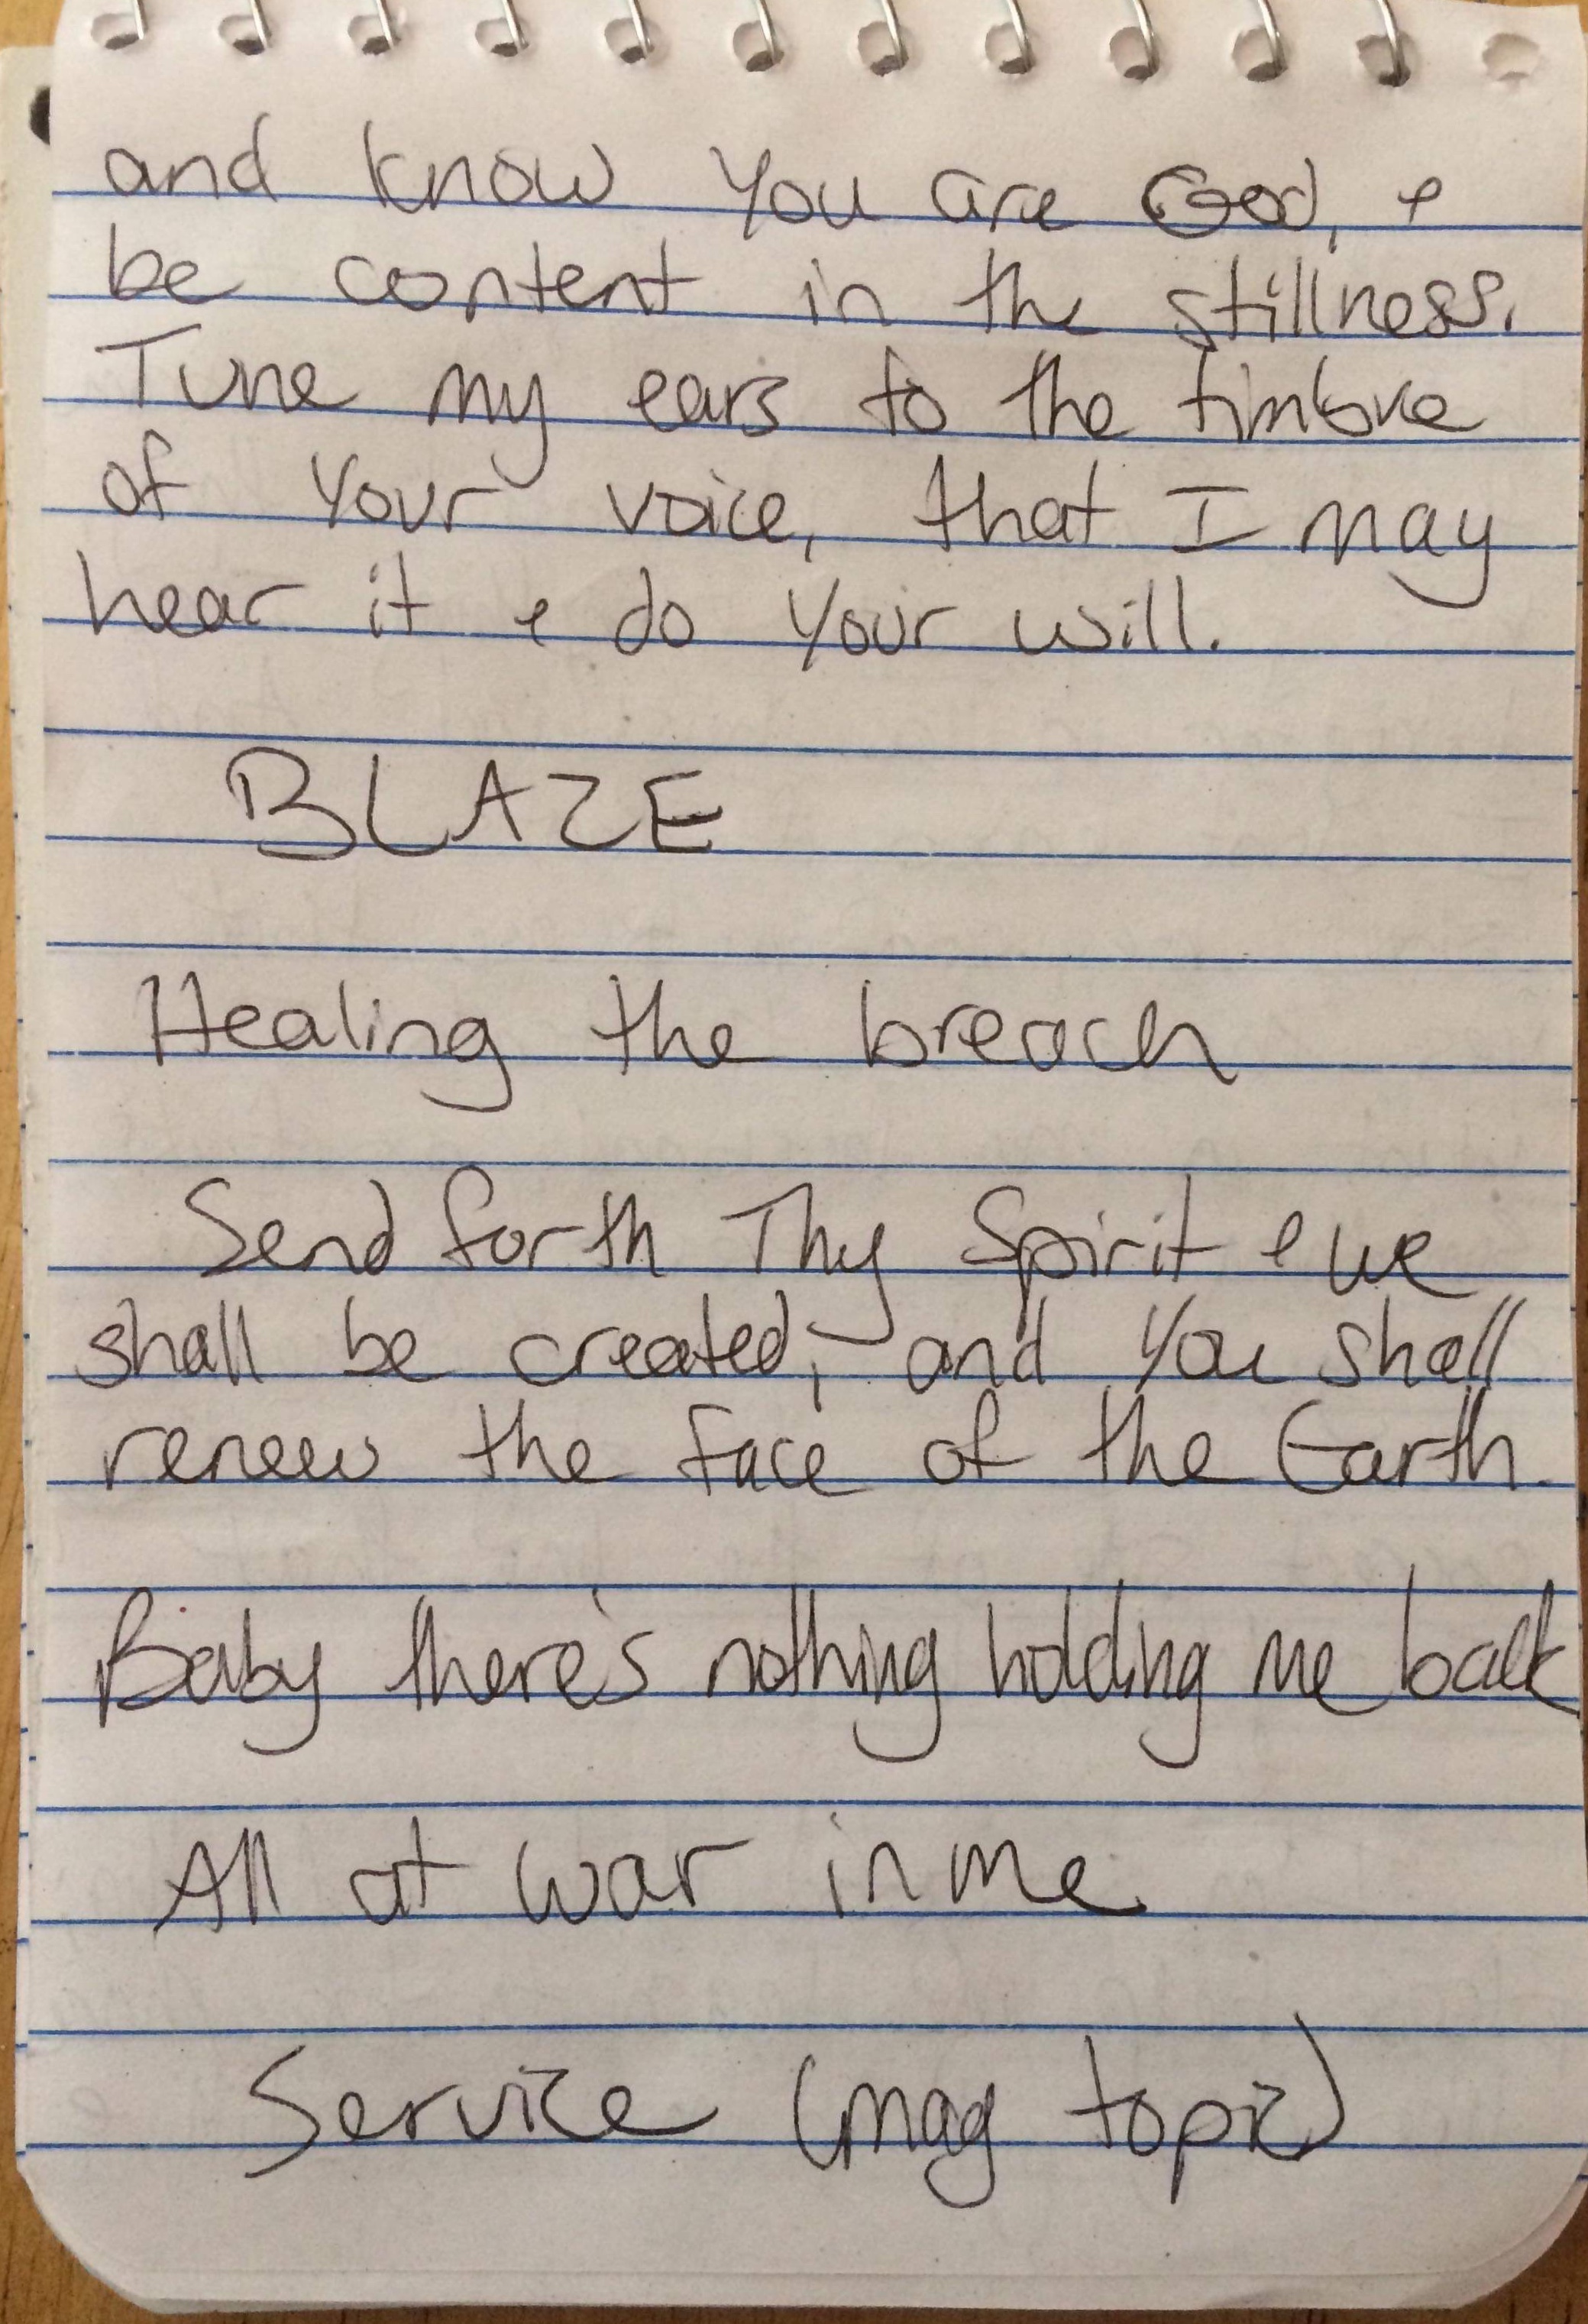 and know You are God, &
be content in the stillness.
Tune my ears to the timbre
of Your voice, that I may
hear it & do Your will.
BLAZE
Healing the breach
Send forth Thy Spirit & we
shall be created; and You shall
renew the face of the Earth.
Baby there's nothing holding me back
All at war in me
Service (mag topic)